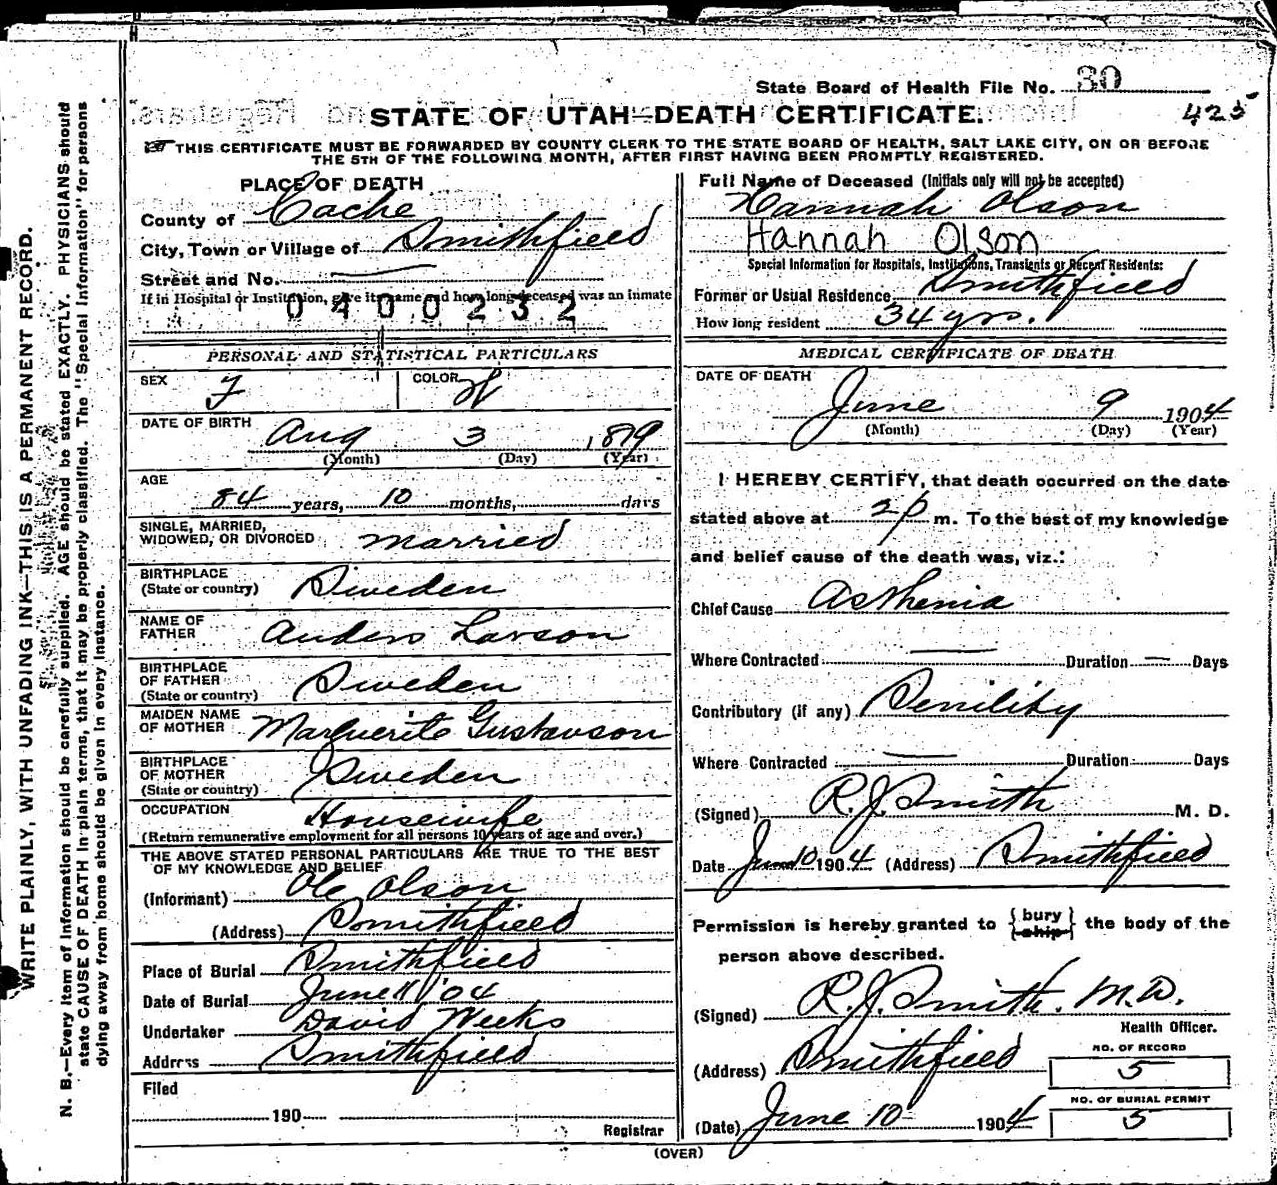 State Board of Health File No. 30
425
STATE OF UTAH—DEATH CERTIFICATE.
THIS CERTIFICATE MUST BE FORWARDED BY COUNTY CLERK TO THE STATE BOARD OF HEALTH, SALT LAKE CITY, ON OR BEFORE
THE 5TH OF THE FOLLOWING MONTH, AFTER FIRST HAVING BEEN PROMPTLY REGISTERED.
WRITE PLAINLY, WITH UNFADING INK—THIS IS A PERMANENT RECORD.
N. B.—Every item of information should be carefully supplied. AGE should be stated EXACTLY. PHYSICIANS should
state CAUSE OF DEATH in plain terms, that it may be properly classified. The "Special Information" for persons
dying away from home should be given in every instance.
PLACE OF DEATH
County of Cache
City, Town or Village of Smithfield
Street and No. —
If in Hospital or Institution, give its name and how long deceased was an inmate
0400232
PERSONAL AND STATISTICAL PARTICULARS
SEX F COLOR W
DATE OF BIRTH Aug 3 1819
(Month) (Day) (Year)
AGE
84 years, 10 months, days
SINGLE, MARRIED,
WIDOWED, OR DIVORCED Married
BIRTHPLACE
(State or country) Sweden
NAME OF
FATHER Anders Larson
BIRTHPLACE
OF FATHER
(State or country) Sweden
MAIDEN NAME
OF MOTHER Marguerite Gustavson
BIRTHPLACE
OF MOTHER
(State or country) Sweden
OCCUPATION Housewife
(Return remunerative employment for all persons 10 years of age and over.)
THE ABOVE STATED PERSONAL PARTICULARS ARE TRUE TO THE BEST
OF MY KNOWLEDGE AND BELIEF
(Informant) Ole Olson
(Address) Smithfield
Place of Burial Smithfield
Date of Burial June 11 '04
Undertaker David Weeks
Address Smithfield
Filed
190
Registrar
Full Name of Deceased (Initials only will not be accepted)
Hannah Olson
Hannah Olson
Special Information for Hospitals, Institutions, Transients or Recent Residents:
Former or Usual Residence Smithfield
How long resident 34 yrs.
MEDICAL CERTIFICATE OF DEATH
DATE OF DEATH
June 9 1904
(Month) (Day) (Year)
I HEREBY CERTIFY, that death occurred on the date
stated above at 2 p m. To the best of my knowledge
and belief cause of the death was, viz.:
Chief Cause Asthenia
Where Contracted — Duration — Days
Contributory (if any) Senility
Where Contracted — Duration Days
(Signed) R. J. Smith M. D.
Date June 10 1904 (Address) Smithfield
Permission is hereby granted to {bury ship} the body of the
person above described.
(Signed) R. J. Smith. M.D.
Health Officer.
(Address) Smithfield
NO. OF RECORD
5
NO. OF BURIAL PERMIT
5
(Date) June 10 1904
(OVER)